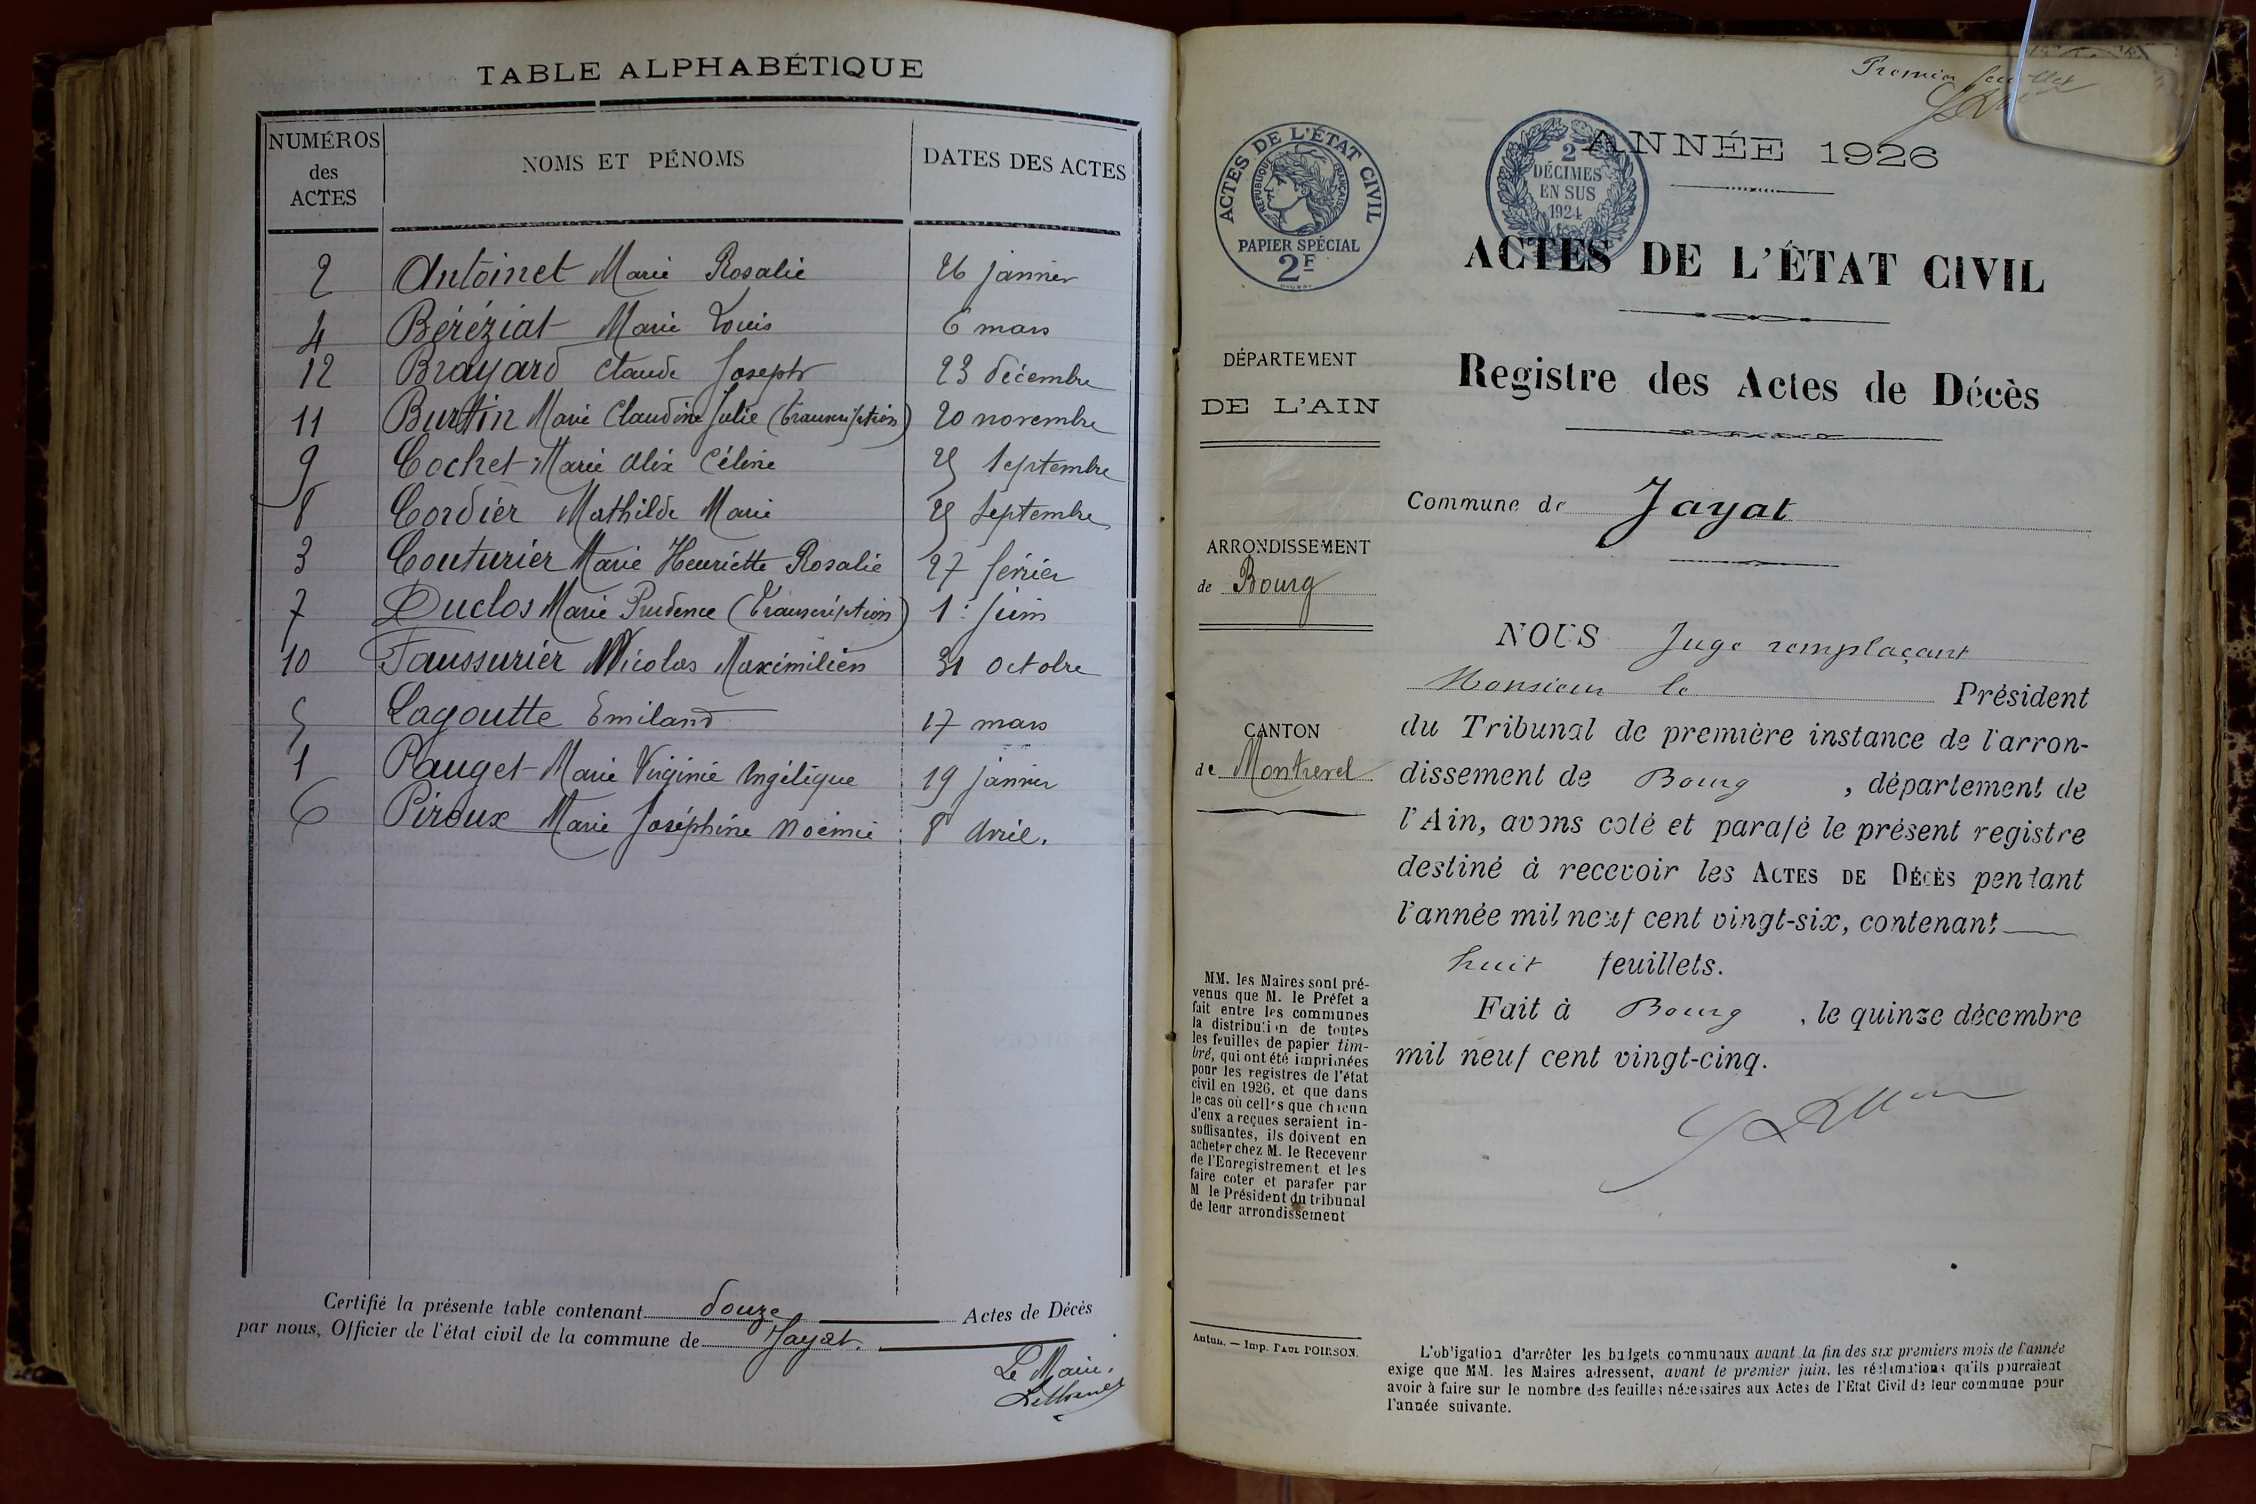 TABLE ALPHABÉTIQUE
NUMÉROS des ACTES
NOMS ET PÉNOMS
DATES DES ACTES
2 Antoinet Marie Rosalie 26 janvier
4 Béréziat Marie Louis 6 mars
12 Brayard Claude Joseph 23 décembre
11 Burtin Marie Claudine Julie (Transcription) 20 novembre
9 Cochet Marie Alix Céline 25 Septembre
8 Cordier Mathilde Marie 25 Septembre
3 Couturier Marie Henriette Rosalie 27 février
7 Duclos Marie Prudence (Transcription) 1er juin
10 Faussurier Nicolas Maximilien 31 octobre
5 Lagoutte Emiland 17 mars
1 Pauget Marie Virginie Angélique 19 janvier
6 Piroux Marie Joséphine Noémie 8 Avril.
Certifié la présente table contenant douze Actes de Décès
par nous, Officier de l'état civil de la commune de Jayat.
Le Maire,
Premier feuillet
ACTES DE L'ÉTAT CIVIL
RÉPUBLIQUE FRANÇAISE
PAPIER SPÉCIAL
2F
2
DÉCIMES
EN SUS
1924
ANNÉE 1926
ACTES DE L'ÉTAT CIVIL
Registre des Actes de Décès
Commune de Jayat
DÉPARTEMENT
DE L'AIN
ARRONDISSEMENT
de Bourg
CANTON
de Montrevel
NOUS Juge remplaçant
Monsieur le Président
du Tribunal de première instance de l'arron-
dissement de Bourg, département de
l'Ain, avons coté et parafé le présent registre
destiné à recevoir les ACTES DE DÉCÈS pendant
l'année mil neuf cent vingt-six, contenant
huit feuillets.
Fait à Bourg, le quinze décembre
mil neuf cent vingt-cinq.
MM. les Maires sont pré-
venus que M. le Préfet a
fait entre les communes
la distribution de toutes
les feuilles de papier tim-
bré, qui ont été imprimées
pour les registres de l'état
civil en 1926, et que dans
le cas où celles que chacun
d'eux a reçues seraient in-
suffisantes, ils doivent en
acheter chez M. le Receveur
de l'Enregistrement et les
faire coter et parafer par
M le Président du tribunal
de leur arrondissement
Autun. — Imp. PAUL POIRSON.
L'obligation d'arrêter les budgets communaux avant la fin des six premiers mois de l'année
exige que MM. les Maires adressent, avant le premier juin, les réclamations qu'ils pourraient
avoir à faire sur le nombre des feuilles nécessaires aux Actes de l'Etat Civil de leur commune pour
l'année suivante.